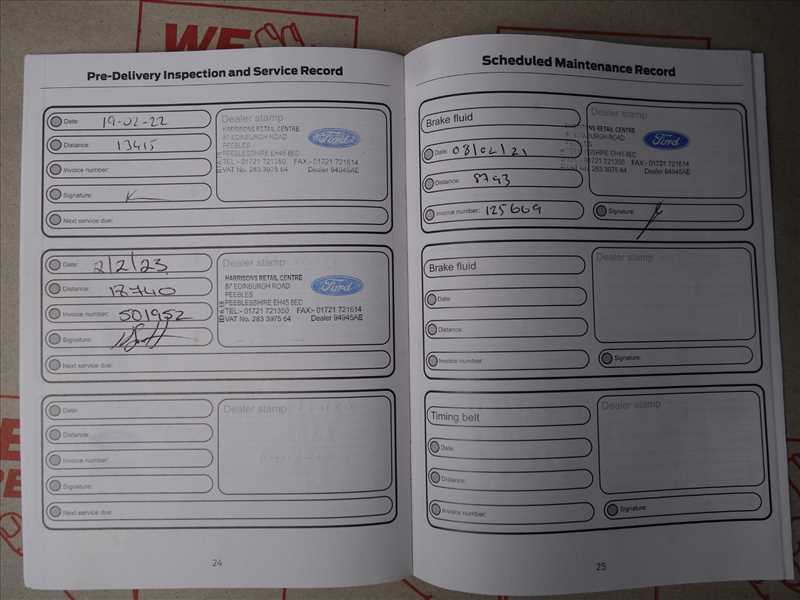 WE
Pre-Delivery Inspection and Service Record
Date: 19-02-22
Distance: 13415
Invoice number:
Signature:
Next service due:
Dealer stamp
HARRISONS RETAIL CENTRE
87 EDINBURGH ROAD
PEEBLES
PEEBLESSHIRE EH45 8EC
TEL:- 01721 721350 FAX:- 01721 721614
VAT No. 283 3975 64 Dealer 94945AE
Ford
Date: 2/2/23
Distance: 17740
Invoice number: 501952
Signature:
Next service due:
Dealer stamp
HARRISONS RETAIL CENTRE
87 EDINBURGH ROAD
PEEBLES
PEEBLESSHIRE EH45 8EC
TEL:- 01721 721350 FAX:- 01721 721614
VAT No. 283 3975 64 Dealer 94945AE
Ford
Date:
Distance:
Invoice number:
Signature:
Next service due:
Dealer stamp
24
Scheduled Maintenance Record
Brake fluid
Date: 03/02/21
Distance: 8793
Invoice number: 125669
Dealer stamp
HARRISONS RETAIL CENTRE
87 EDINBURGH ROAD
PEEBLES
PEEBLESSHIRE EH45 8EC
TEL:- 01721 721350 FAX:- 01721 721614
VAT No. 283 3975 64 Dealer 94945AE
Ford
Signature:
Brake fluid
Date:
Distance:
Invoice number:
Dealer stamp
Signature:
Timing belt
Date:
Distance:
Invoice number:
Dealer stamp
Signature:
25